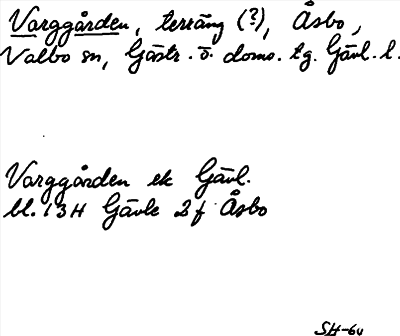 Varggården, terräng (?), Åsbo,
Valbo sn, Gästr. ö. doms. tg. Gävl. l.
Varggården ek Gävl.
bl. 13H Gävle 2f Åsbo
SH-64